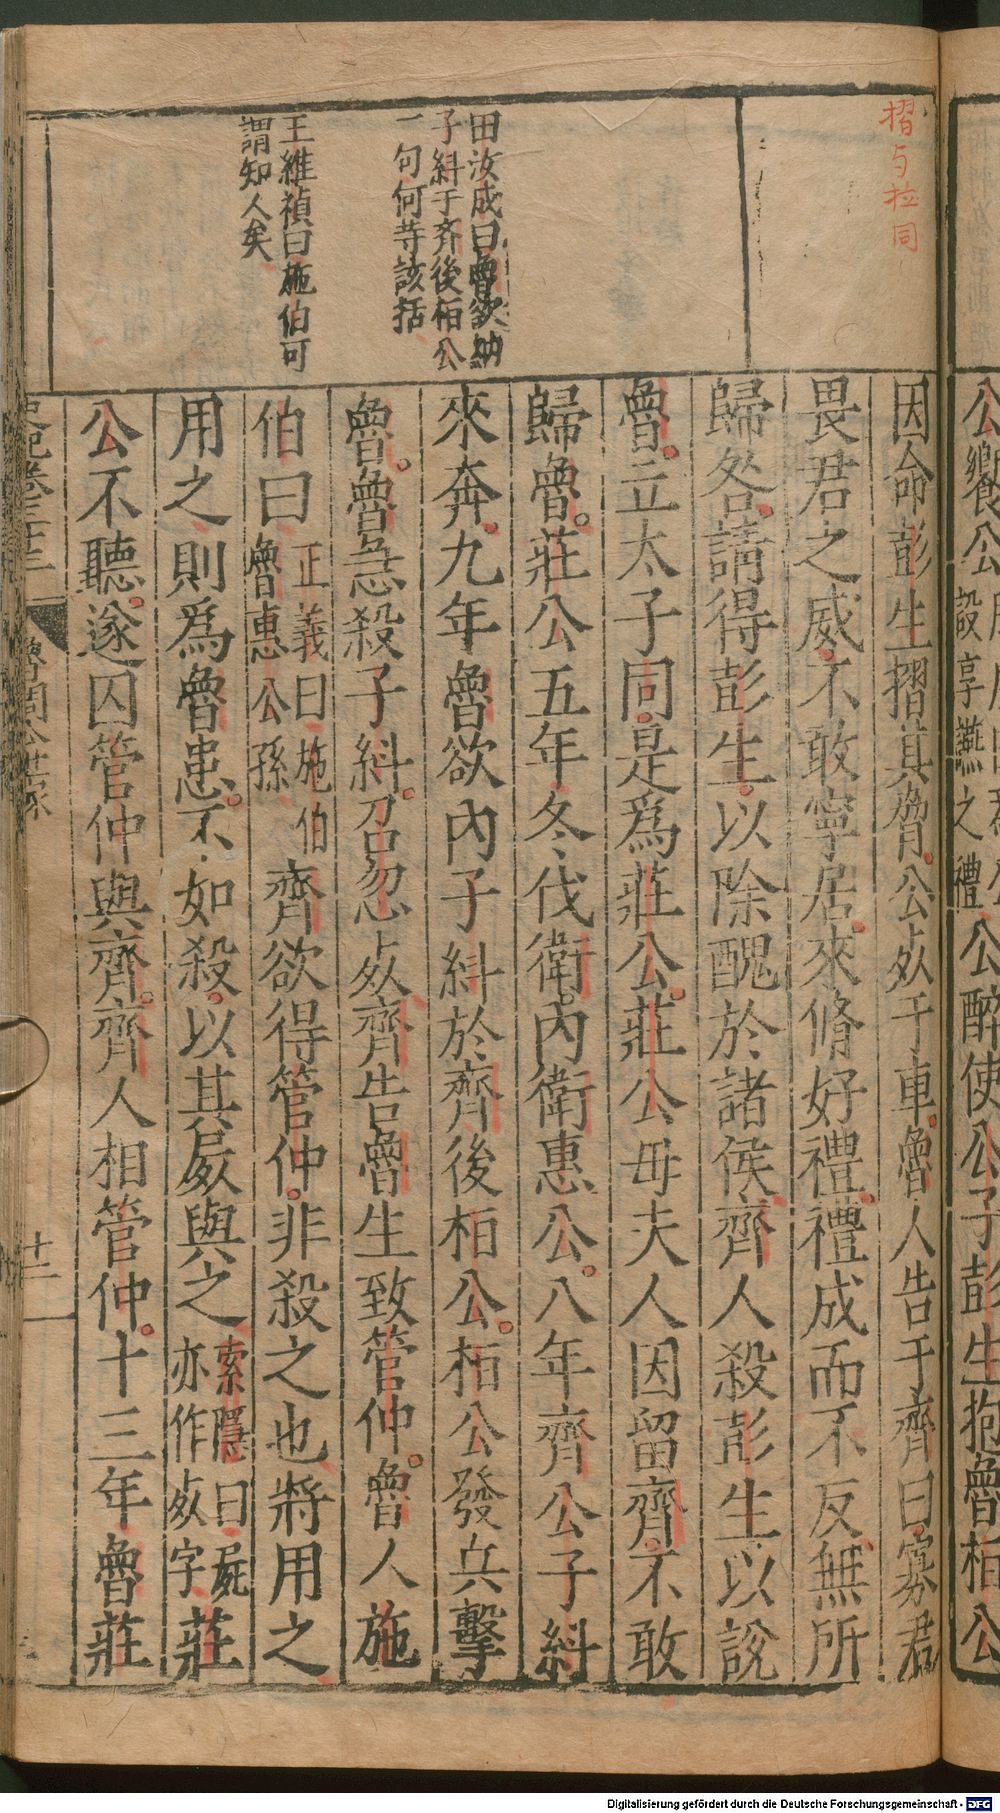 公饗公
設享讌之禮
公醉使公子彭生抱魯桓公
摺与拉同
因命彭生摺其脅公死于車魯人告于齊曰寡君
畏君之威不敢寧居來脩好禮禮成而不反無所
歸咎請得彭生以除醜於諸侯齊人殺彭生以說
魯立太子同是爲莊公莊公母夫人因留齊不敢
歸魯莊公五年冬伐衛內衛惠公八年齊公子糾
來奔九年魯欲內子糾於齊後桓公桓公發兵擊
魯魯急殺子糾召忽死齊告魯生致管仲魯人施
伯曰
正義曰施伯
魯惠公孫
齊欲得管仲非殺之也將用之
用之則爲魯患不如殺以其屍與之
索隱曰屍
亦作死字
莊
公不聽遂囚管仲與齊齊人相管仲十三年魯莊
田汝成曰魯欲納
子糾于齊後桓公
一句何等該括
王維禎曰施伯可
謂知人矣
史記卷三十三
魯周公世家
十二
Digitalisierung gefördert durch die Deutsche Forschungsgemeinschaft - DFG